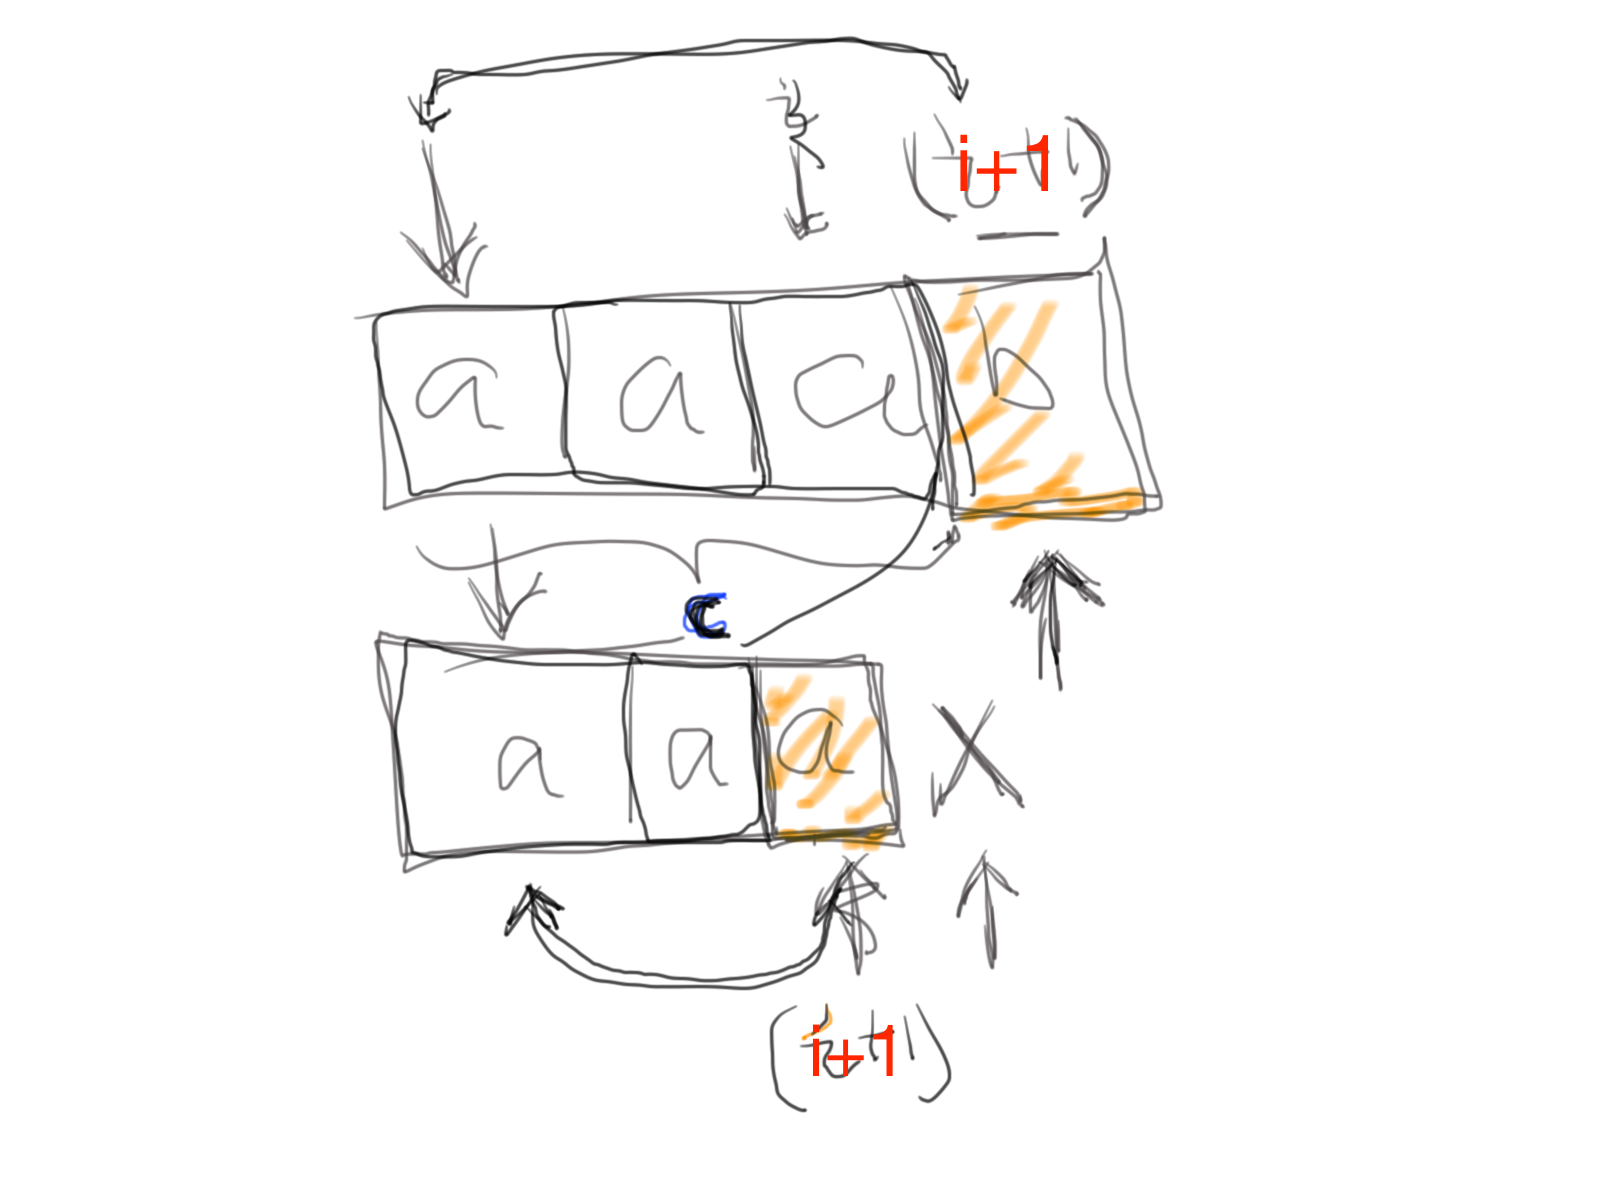 i
(i+1)
a a a b
c
a a a
(i+1)